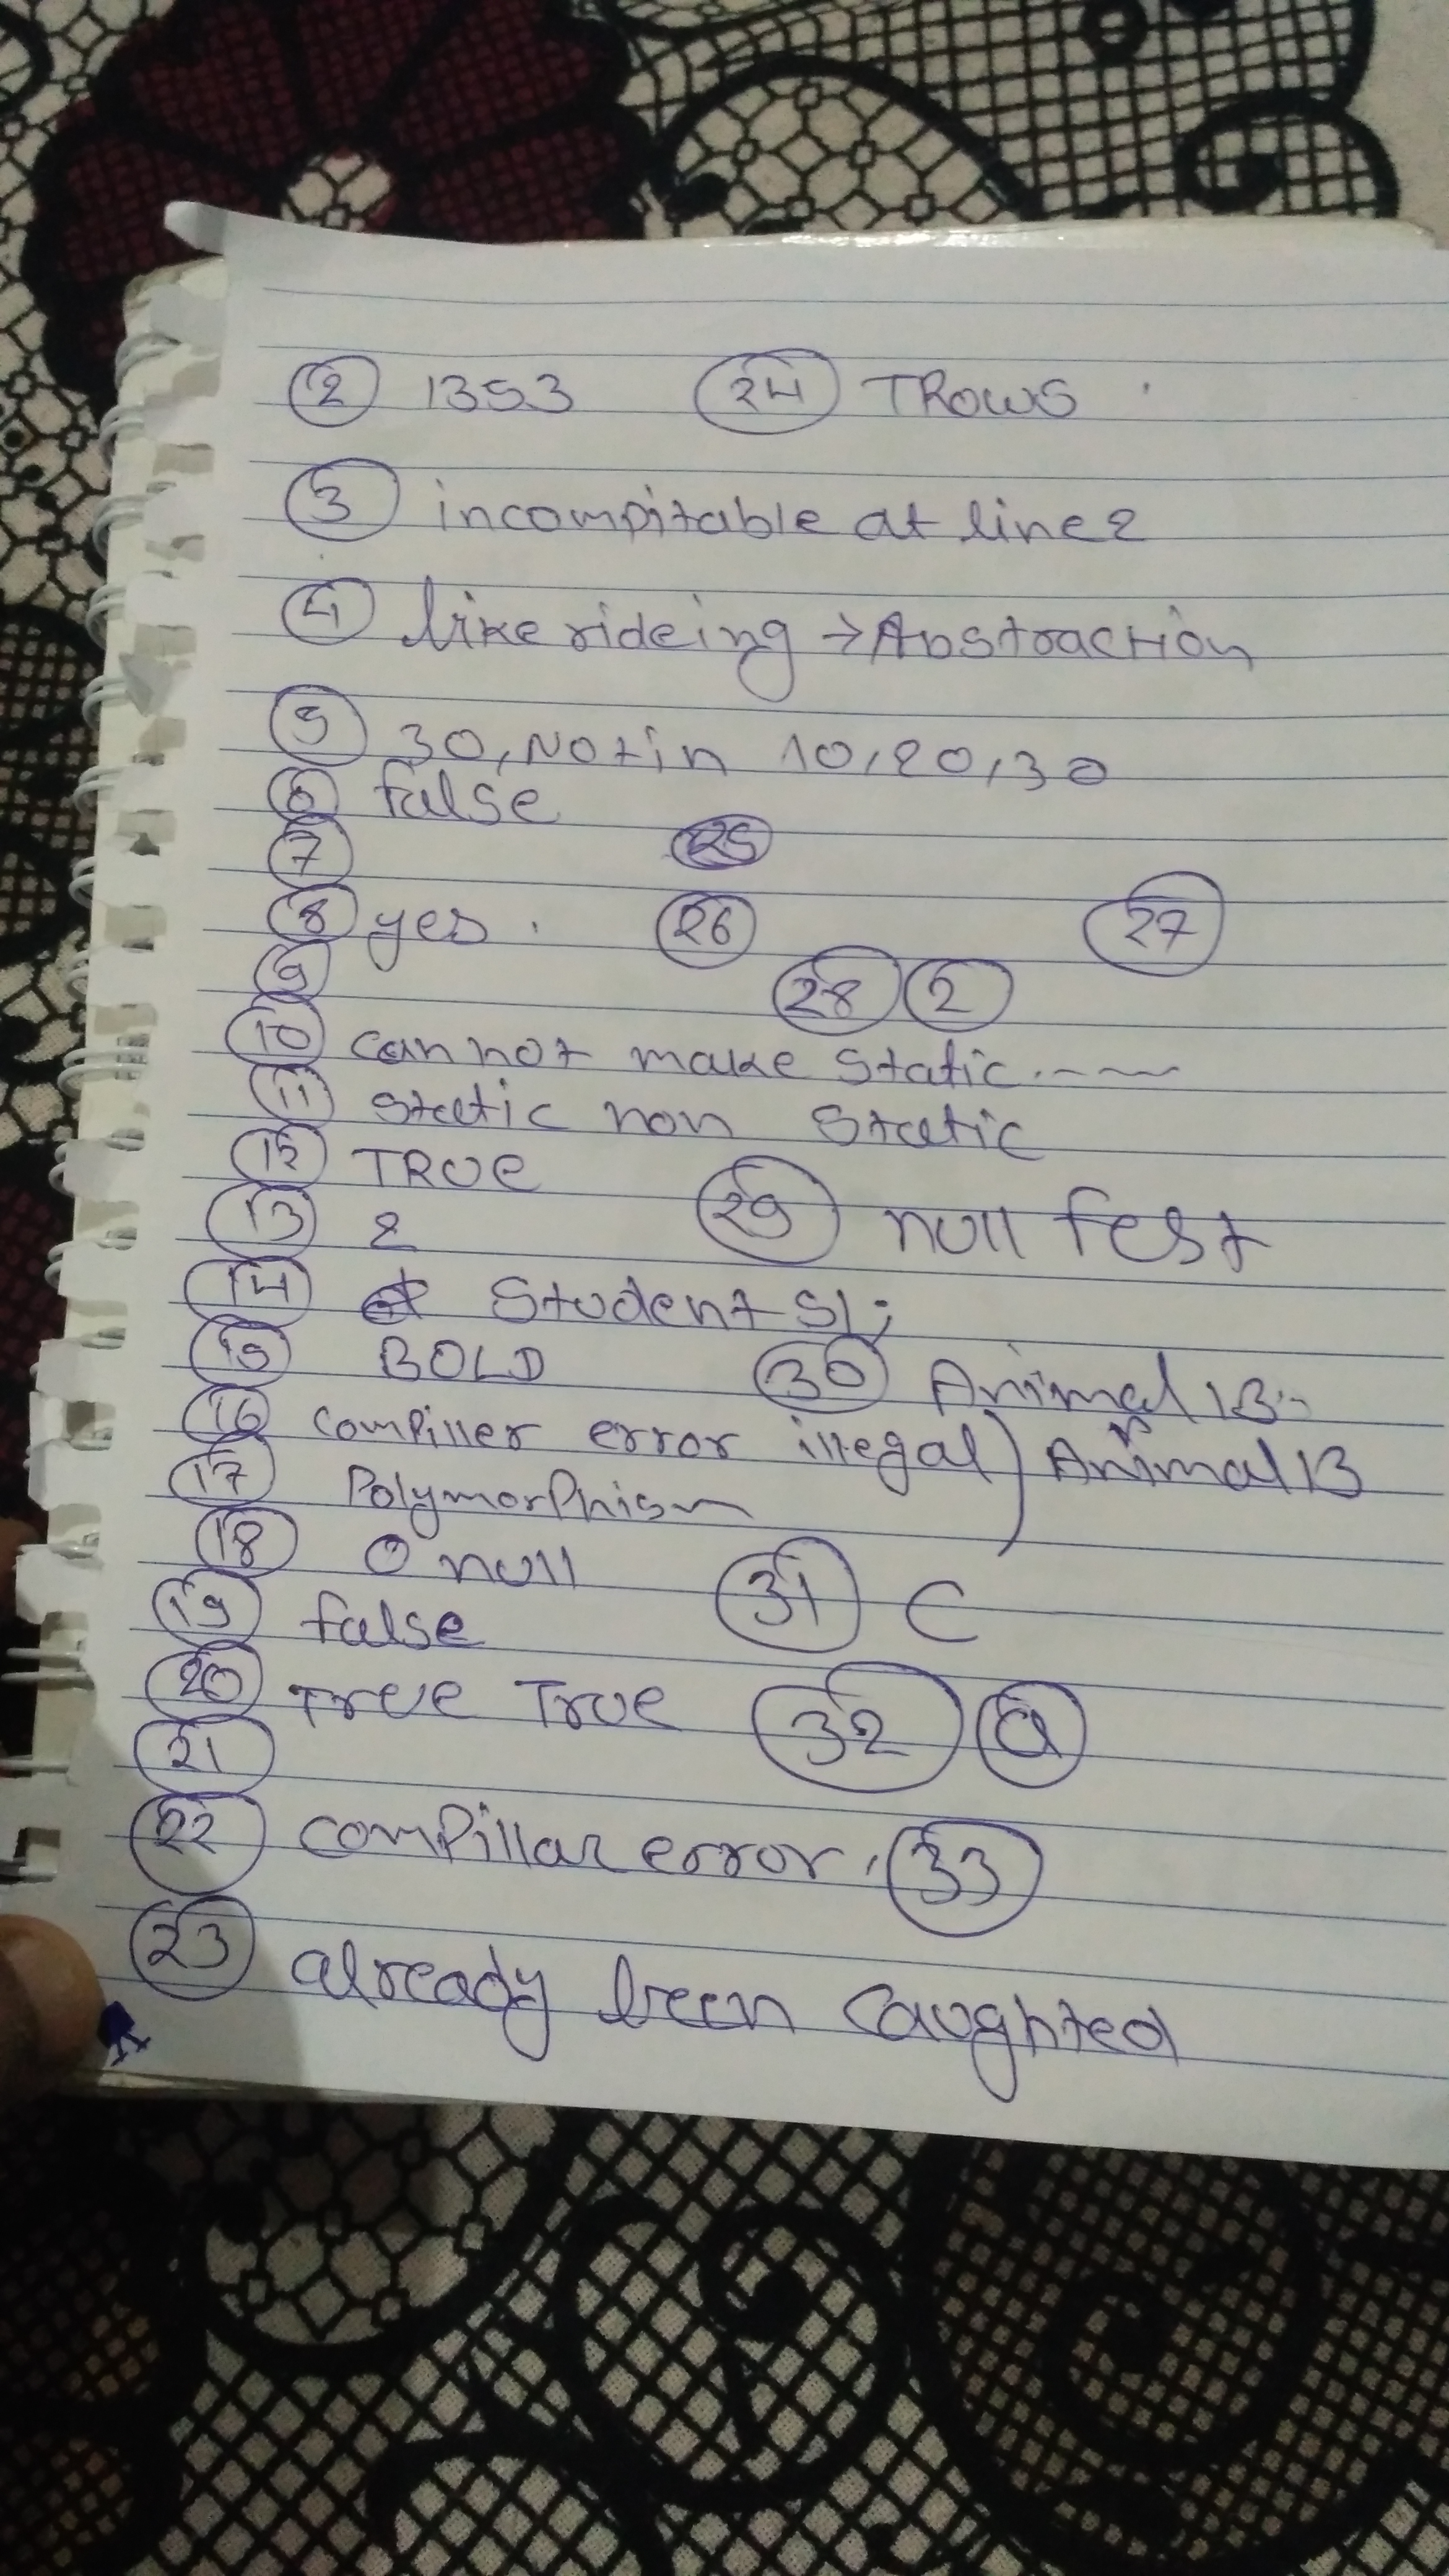 2 1353 24 TROWS
3 incompitable at line 2
4 like rideing → Abstraction
5 30, Not in 10, 20, 30
6 false
7 25
8 yes. 26 27
9 28 2
10 can not make static.
11 static non static
12 TRUe
13 2 29 null fest
14 Student S1;
15 BOLD 30 Animal 13
16 compiller error illegal) Animal 13
17 Polymorphism
18 0 null 31 C
19 false
20 True True 32 a
21
22 compillar error. 33
23 already been caughted